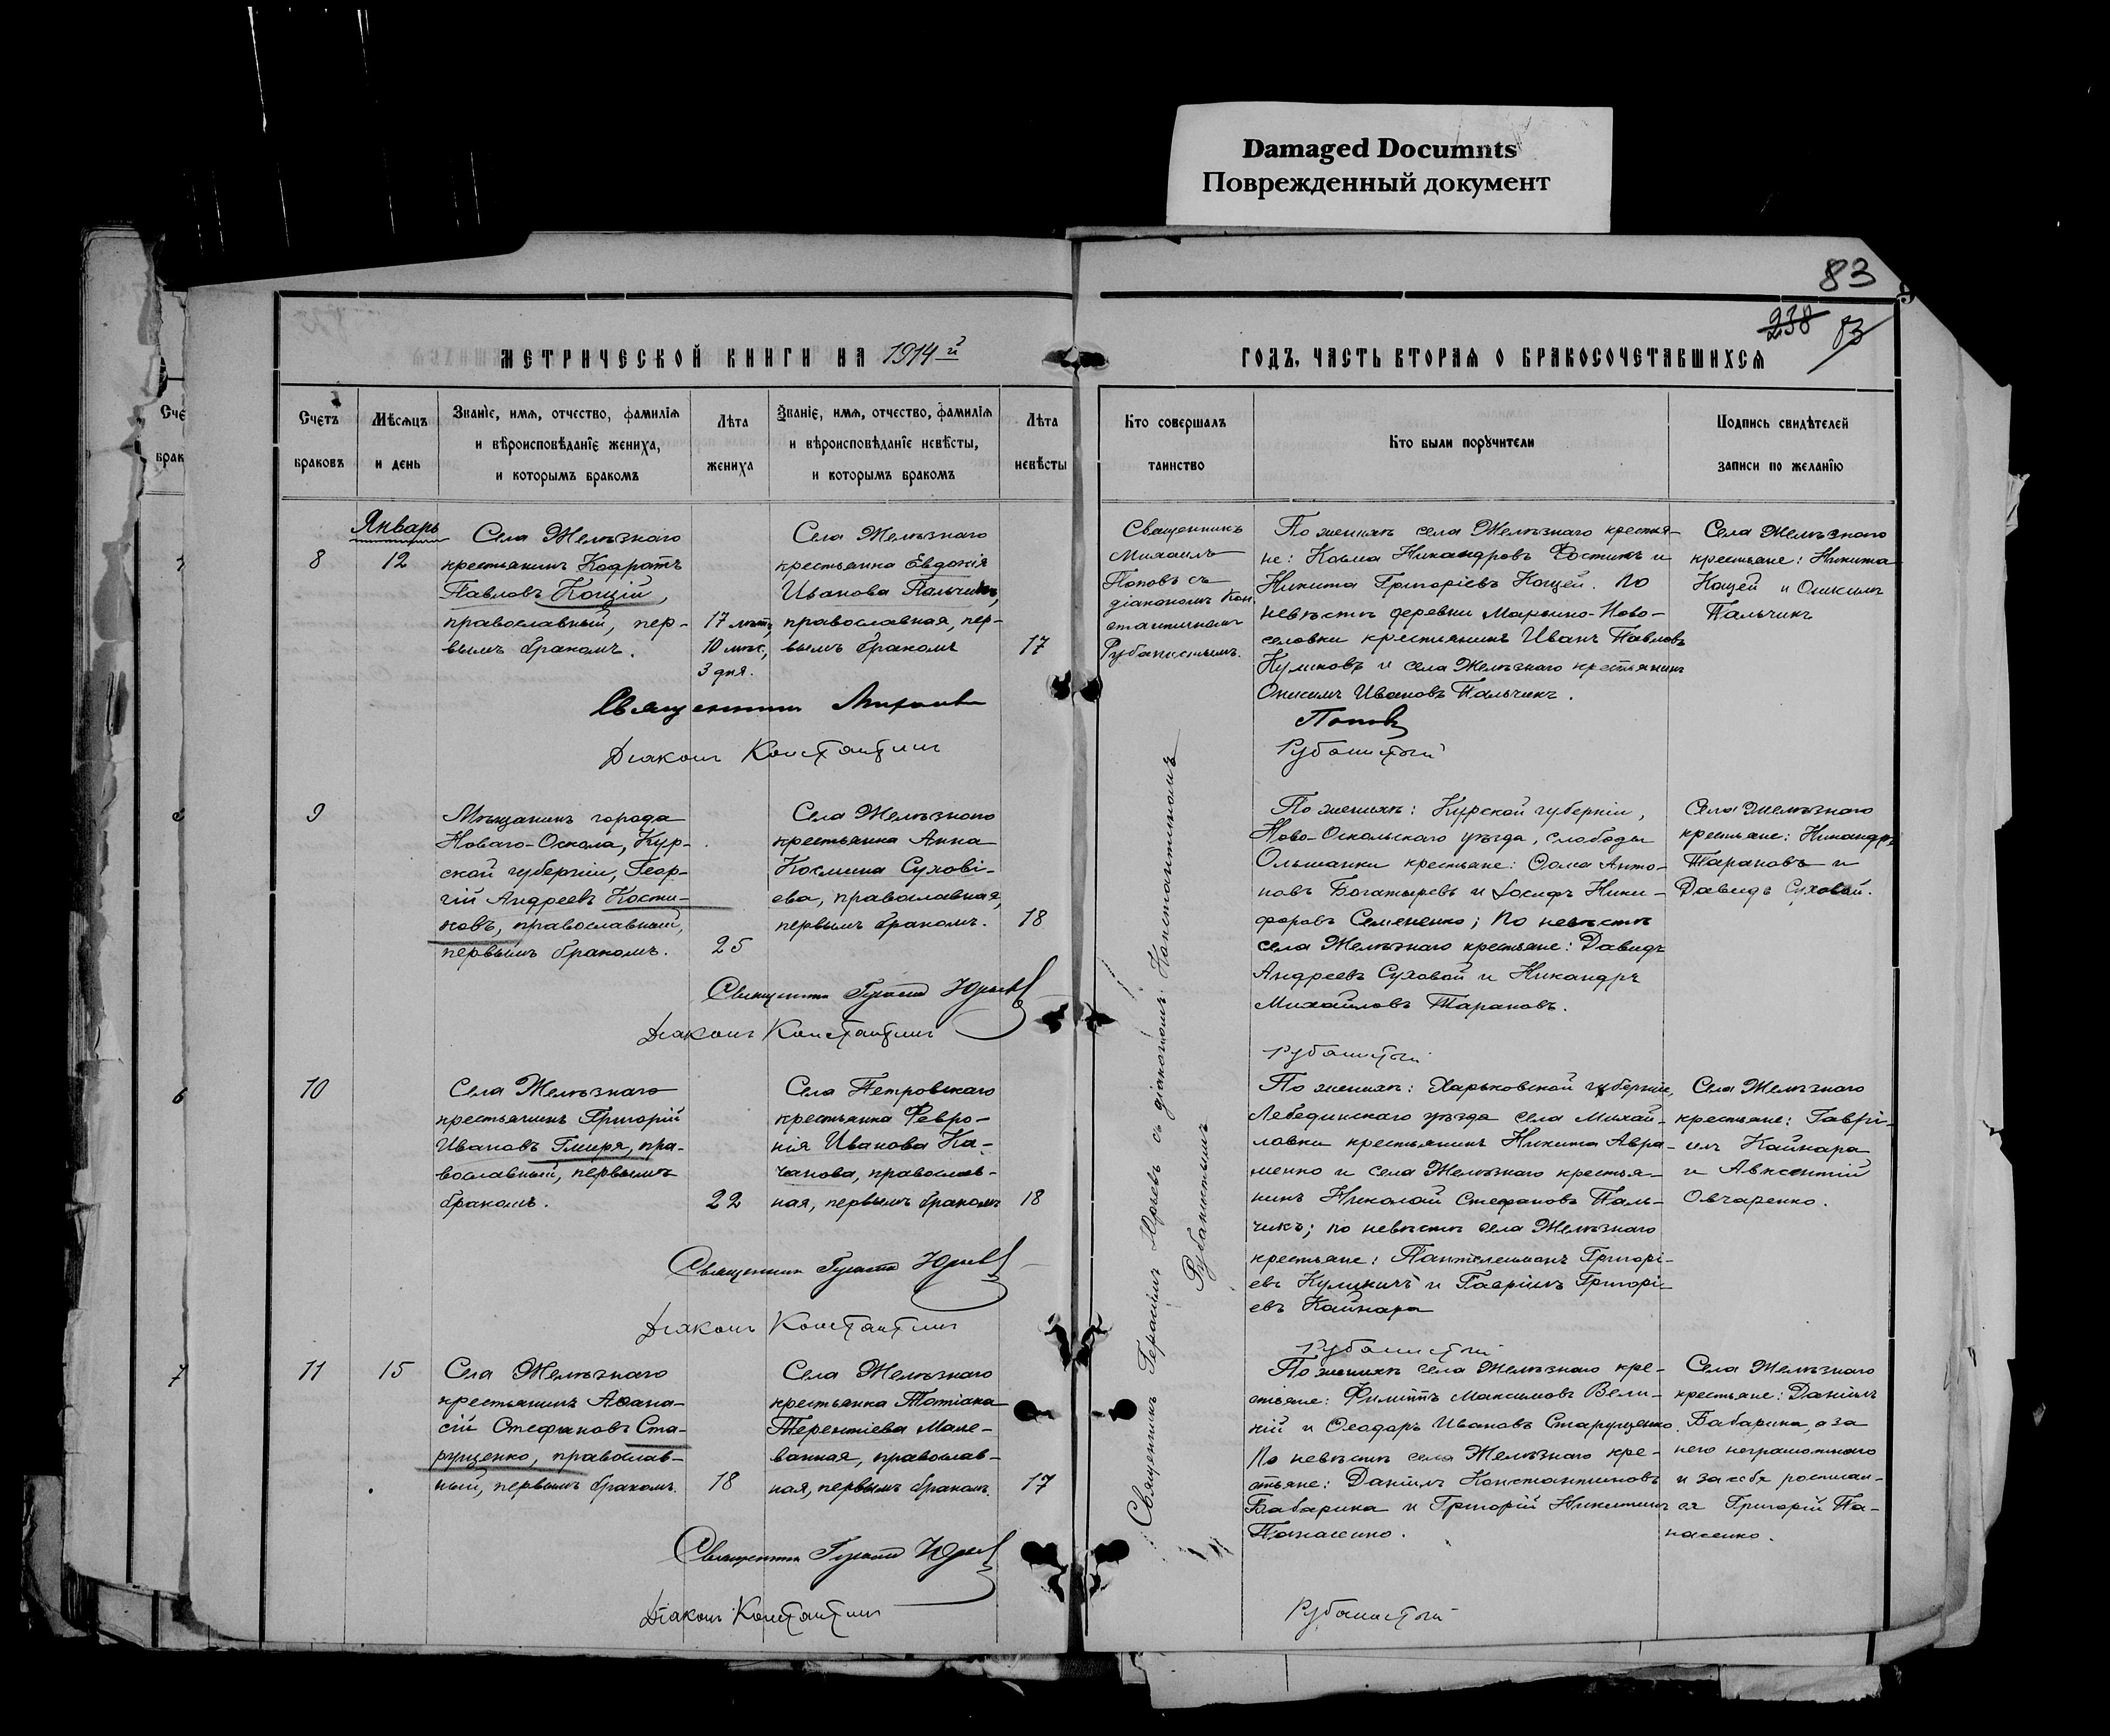 Damaged Documnts
Поврежденный документ
83
238 83
МЕТРИЧЕСКОЙ КНИГИ НА 1914й
ГОДЪ, ЧАСТЬ ВТОРАЯ О БРАКОСОЧЕТАВШИХСЯ
Счетъ
браковъ
Мѣсяцъ
и день
Званіе, имя, отчество, фамилія
и вѣроисповѣданіе жениха,
и которымъ бракомъ
Лѣта
жениха
Званіе, имя, отчество, фамилія
и вѣроисповѣданіе невѣсты,
и которымъ бракомъ
Лѣта
невѣсты
Кто совершалъ
таинство
Кто были поручители
Подпись свидѣтелей
записи по желанію
Январь
8
12
Села Желѣзнаго
крестьянинъ Кодратъ
Павловъ Кощій,
православный, пер-
вымъ бракомъ.
17 лѣтъ,
10 мѣс.,
3 дня.
Села Желѣзнаго
крестьянка Евдокія
Иванова Пальчикъ,
православная, пер-
вымъ бракомъ
17
Священникъ
Михаилъ
Поповъ съ
діакономъ Кон-
стантиномъ
Рубанистымъ.
По женихѣ села Желѣзнаго крестья-
не: Козьма Никандровъ Костинъ и
Никита Григоріевъ Кощей. По
невѣстѣ деревни Марьино-Ново-
селовки крестьянинъ Иванъ Павловъ
Куликовъ и села Желѣзнаго крестьянинъ
Онисимъ Ивановъ Пальчикъ.
Села Желѣзнаго
крестьяне: Никита
Кощей и Онисимъ
Пальчикъ
Священникъ Михаилъ Поповъ
Діаконъ Константинъ Рубанистый
9
Мѣщанинъ города
Новаго-Оскола, Кур-
ской губерніи, Геор-
гій Андреевъ Кости-
ковъ, православный,
первымъ бракомъ.
25
Села Желѣзнаго
крестьянка Анна
Космина Сухові-
ева, православная,
первымъ бракомъ.
18
По женихѣ: Курской губерніи,
Ново-Оскольскаго уѣзда, слободы
Ольшанки крестьяне: Ѳома Анто-
новъ Богатыревъ и Іосифъ Ники-
форовъ Семененко; По невѣстѣ
села Желѣзнаго крестьяне: Давидъ
Андреевъ Суховой и Никандръ
Михайловъ Тарановъ.
Села Желѣзнаго
крестьяне: Никандръ
Тарановъ и
Давидъ Суховой.
Священникъ Герасимъ Юрьевъ
Діаконъ Константинъ Рубанистый
10
Села Желѣзнаго
крестьянинъ Григорій
Ивановъ Гмиря, пра-
вославный, первымъ
бракомъ.
22
Села Петровскаго
крестьянка Февро-
нія Иванова Ка-
чанова, православ-
ная, первымъ бракомъ
18
Священникъ Герасимъ Юрьевъ съ діакономъ Константиномъ
Рубанистымъ
По женихѣ: Харьковской губерніи,
Лебединскаго уѣзда села Михай-
ловки крестьянинъ Никита Авра-
менко и села Желѣзнаго крестья-
нинъ Николай Стефановъ Паль-
чикъ; по невѣстѣ села Желѣзнаго
крестьяне: Пантелеимонъ Григорі-
евъ Куликичъ и Гавріилъ Григорі-
евъ Кайнара
Села Желѣзнаго
крестьяне: Гаврі-
илъ Кайнара
и Авксентій
Овчаренко.
Священникъ Герасимъ Юрьевъ
Діаконъ Константинъ Рубанистый
11
15
Села Желѣзнаго
крестьянинъ Аѳана-
сій Стефановъ Ста-
рущенко, православ-
ный, первымъ бракомъ.
18
Села Желѣзнаго
крестьянка Татіана
Терентіева Мале-
ванная, православ-
ная, первымъ бракомъ.
17
По женихѣ села Желѣзнаго кре-
стьяне: Филиппъ Максимовъ Вели-
кій и Ѳеодоръ Ивановъ Старущенко.
По невѣстѣ села Желѣзнаго кре-
стьяне: Даніилъ Константиновъ
Бабарика и Григорій Никитинъ
Панасенко.
Села Желѣзнаго
крестьяне: Даніилъ
Бабарика, а за
него неграмотнаго
и за себя росписал-
ся Григорій Па-
насенко.
Священникъ Герасимъ Юрьевъ
Діаконъ Константинъ Рубанистый